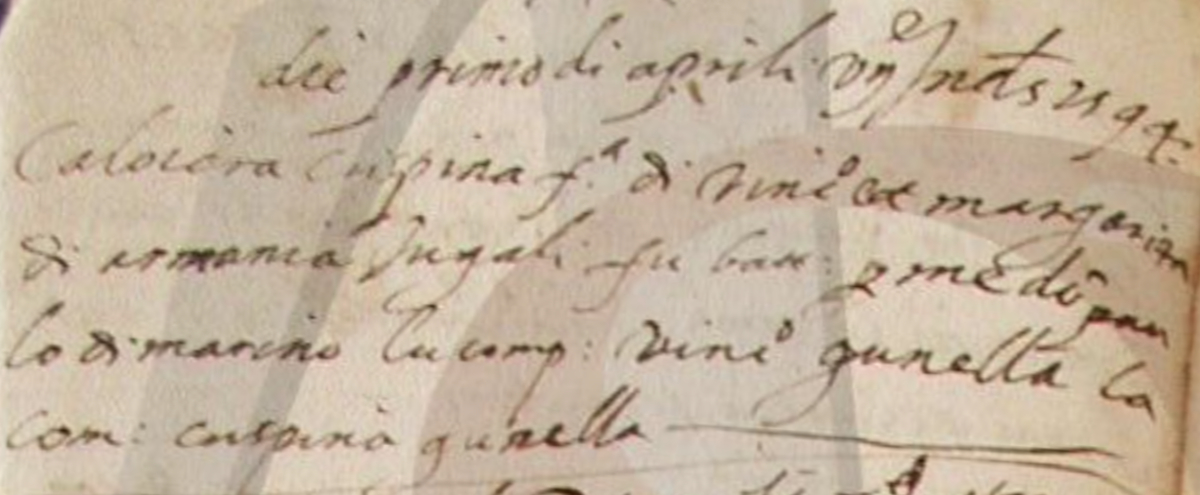 die primo di aprili vij Ind.s 1594
Calociera Cuspina f.a di Vinc.o et margarita
di armania Jugali fu batt: p me don pau
lo di marino lu comp: Vinc.o gunella la
com: cuspina gunella